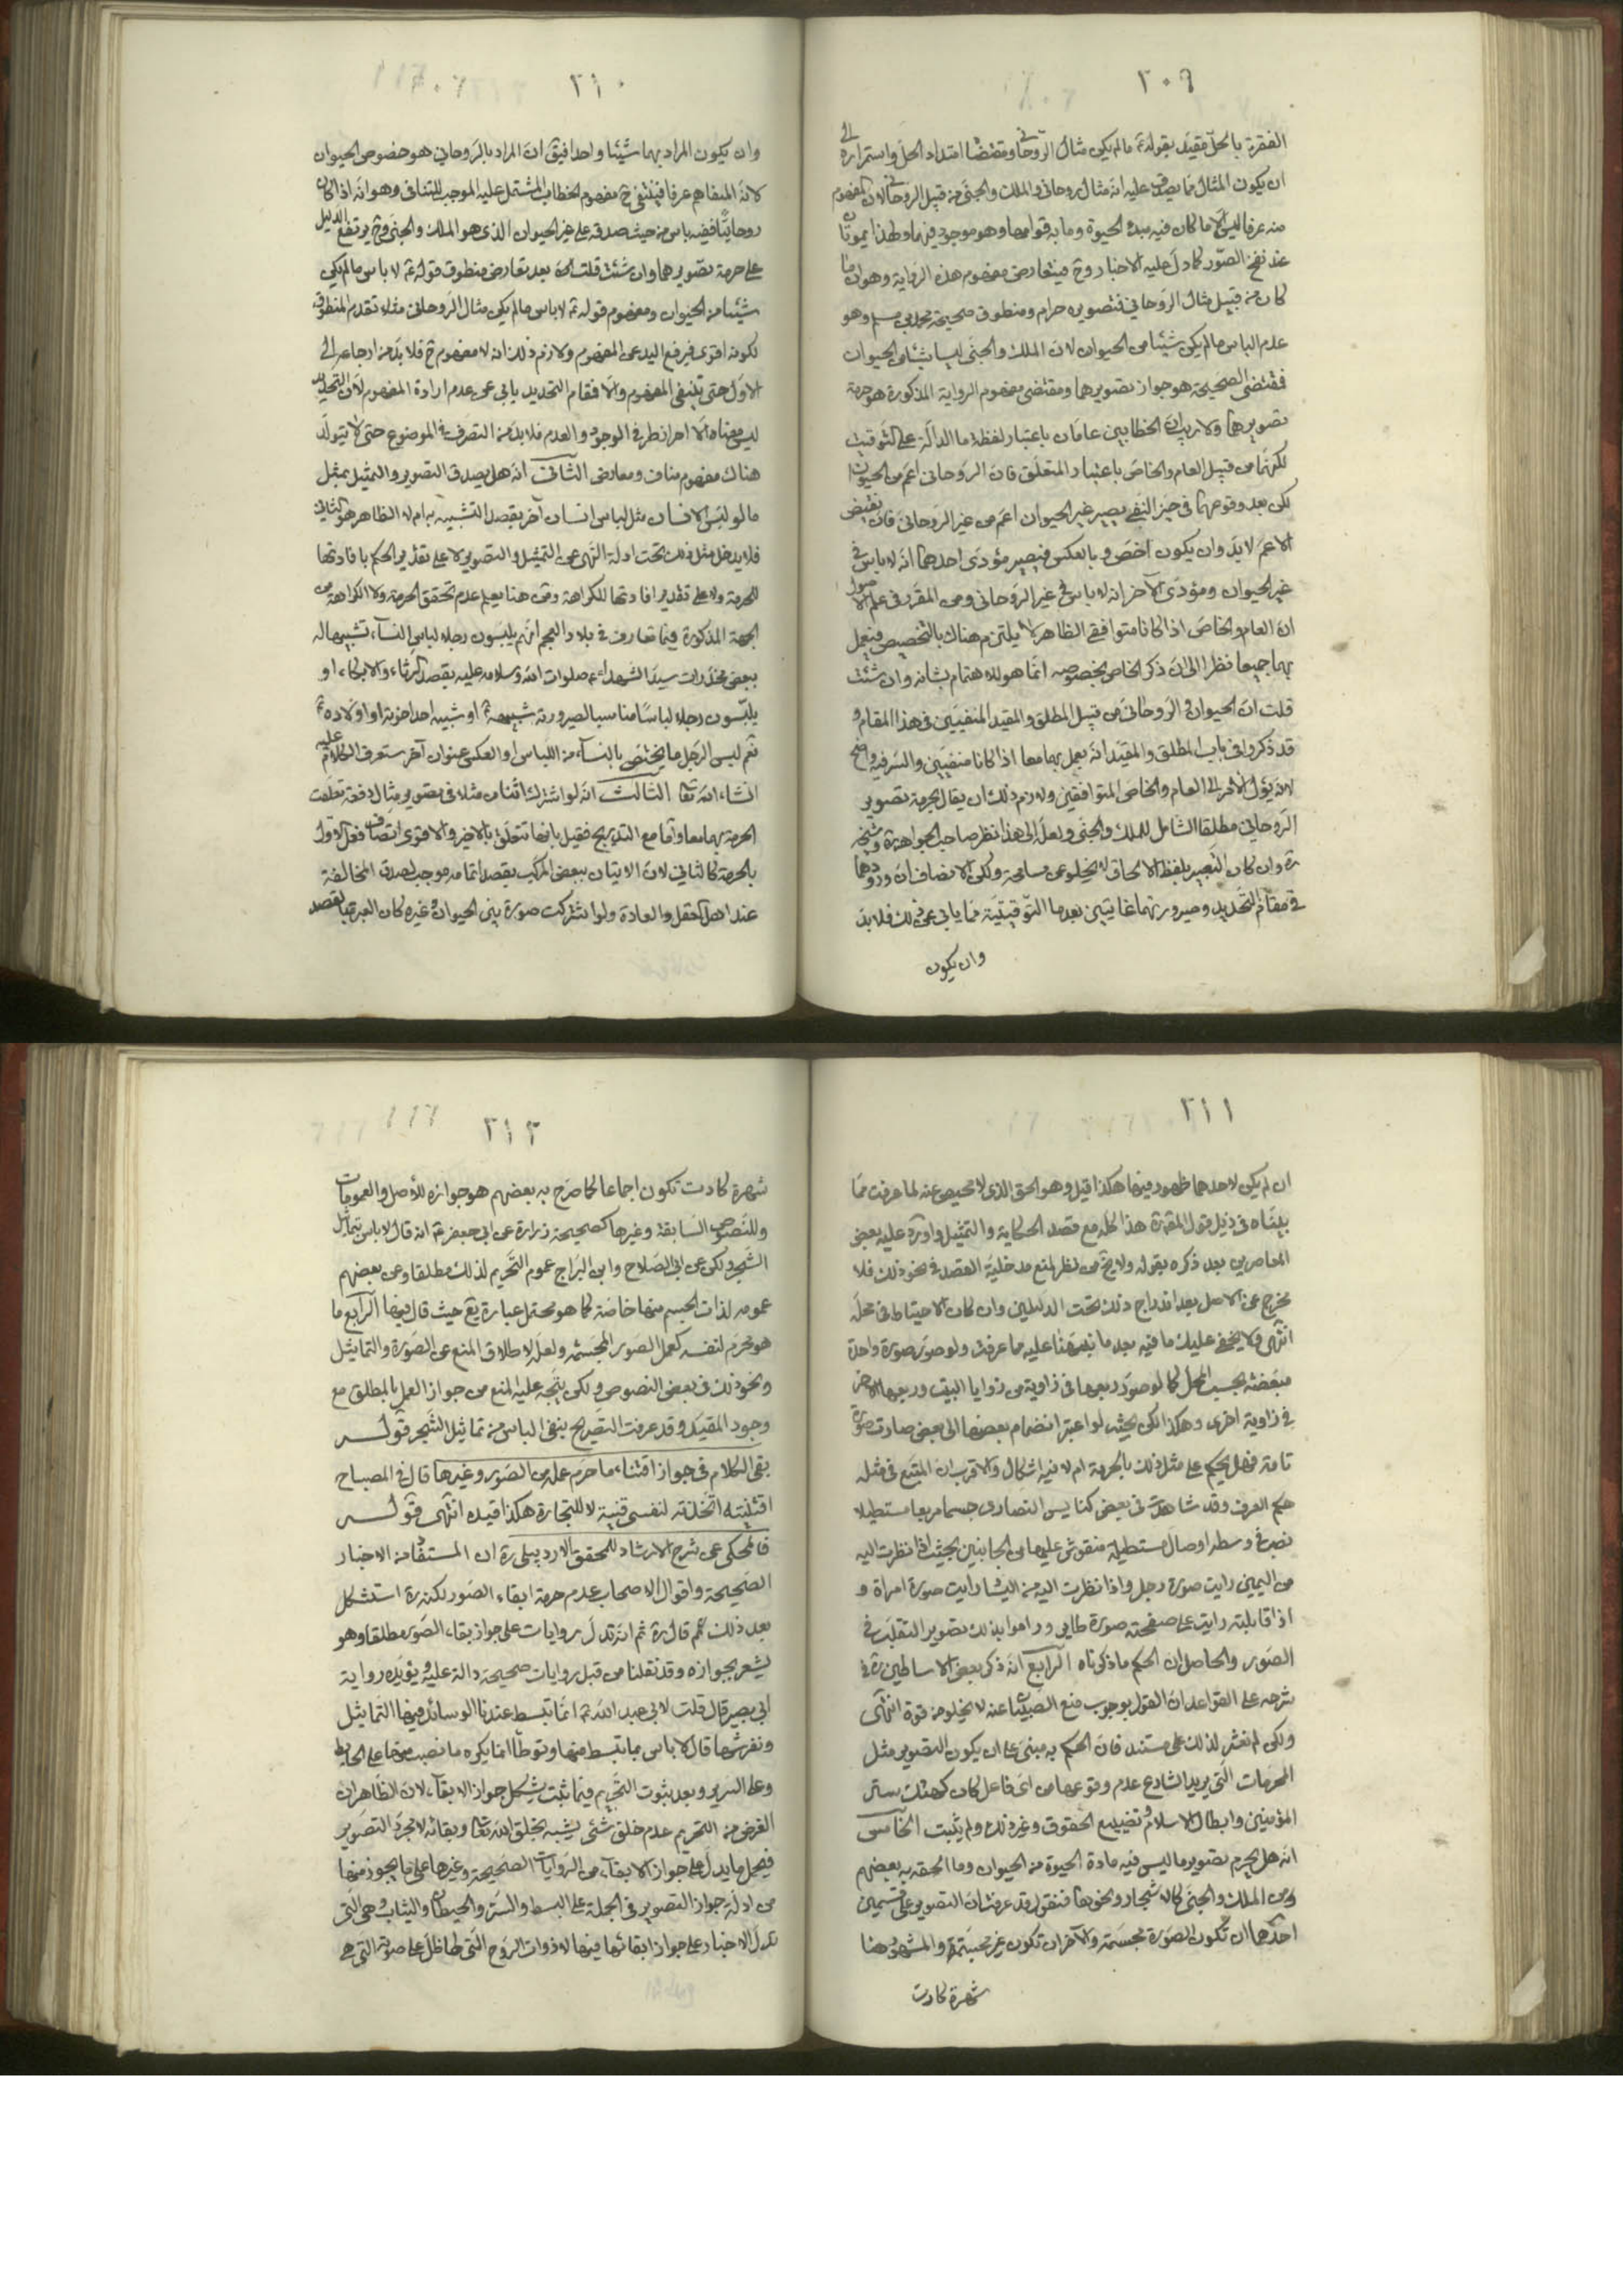 ٢٠٩
الفقرة بالحلّ مقيّد بقوله ع ما لم يكن مثال الروحاني ومقتضا امتداد الحلّ واستمراره الى
ان يكون المثال مما يصدق عليه انه مثال روحاني والملك والجنّي من قبيل الروحاني لان المفهوم
منه عرفا ليس الا ما كان فيه مبدء الحيوة وما به قوامها وهو موجود فيهما ولهذا يموتان
عند نفخ الصّور كما دلّ عليه الاخبار وح فيتعارض مفهوم هذه الرّواية وهو ان ما
كان من قبيل مثال الروحاني فتصويره حرام ومنطوق صحيحة محمد بن مسلم وهو
عدم الباس ما لم يكن شيئا من الحيوان لان الملك والجنّي ليسا شيئا من الحيوان
فمقتضى الصحيحة هو جواز تصويرهما ومقتضى مفهوم الرواية المذكورة هو حرمة
تصويرهما ولا ريب ان الخطابين عامّان باعتبار لفظة ما الدالّة على التوقيت
لكنهما من قبيل العام والخاصّ باعتبار المتعلّق فان الروحاني اعمّ من الحيوان
لكن بعد وقوعهما في حيّز النّفي يصير غير الحيوان اعمّ من غير الروحاني فان نقيض
الاعمّ لا بدّ وان يكون اخصّ وبالعكس فيصير مؤدّى احدهما انّه لا باس في
غير الحيوان ومؤدّى الآخر انه لا باس في غير الروحاني ومن المقرّر في علم الاصول
ان العام والخاصّ اذا كانا متوافقي الظاهر لا يلتزم هناك بالتخصيص فيعمل
بهما جميعا نظرا الى ان ذكر الخاص بخصوصه انّما هو للاهتمام بشانه وان شئت
قلت ان الحيوان والروحاني من قبيل المطلق والمقيد المنفيين في هذا المقام و
قد ذكروا في باب المطلق والمقيّد انه يعمل بهما معا اذا كانا منفيين والسّر فيه واضح
لانه يؤل الامر الى العام والخاصّ المتوافقين ولازم ذلك ان يقال بحرمة تصوير
الرّوحاني مطلقا الشامل للملك والجنّي ولعلّ الى هذا نظر صاحب الجواهر ره وشيخه
ره وان كان التعبير بلفظ الالحاق لا يخلو عن مسامحة ولكن الانصاف ان ورودهما
في مقام التّحديد وصيرورتهما غايتين بعد ما التّوقيتيّة مما يابى عن ذلك فلا بدّ
وان يكون
٢١٠
وان يكون المراد بهما شيئا واحدا فيق ان المراد بالرّوحاني هو خصوص الحيوان
لانه المتفاهم عرفا فينتفي ح مفهوم الخطاب المشتمل عليه الموجب للتنافي وهو انه اذا كان
روحانيّا ففيه باس من حيث صدقه على غير الحيوان الذي هو الملك والجنّي وح يرتفع الدليل
على حرمة تصويرهما وان شئت قلت انه بعد تعارض منطوق قوله ع لا باس ما لم يكن
شيئا من الحيوان ومفهوم قوله ع لا باس ما لم يكن مثال الروحاني مثلا تقدم المنطوق
لكونه اقوى فيرفع اليد عن المفهوم ولازم ذلك انه لا مفهوم ح فلا بدّ من ارجاعه الى
الاوّل حتى ينتفي المفهوم والّا فمقام التحديد يابى عن عدم ارادة المفهوم لان التحديد
ليس معناه الا احراز طرفي الوجود والعدم فلا بدّ من التصرف في الموضوع حتى لا يتولّد
هناك مفهوم مناف ومعارض الثاني انه هل يصدق التصوير والتمثيل بمثل
ما لو لبس الانسان مثل لباس انسان آخر بقصد التشبيه به ام لا الظاهر هو الثاني
فلا يدخل مثل ذلك تحت ادلّة النّهي عن التمثيل والتصوير لا على تقدير الحكم بافادتها
للحرمة ولا على تقدير افادتها للكراهة ومن هنا يعلم عدم تحقق الحرمة ولا الكراهة من
الجهة المذكورة فيما تعارف في بلاد العجم انهم يلبسون رجلا لباس النسآء تشبيها له
ببعض مخدّرات سيّد الشهداء ع صلوات الله وسلامه عليه بقصد الرثاء والابكاء او
يلبّسون رجلا لباسا مناسبا لصيرورته شبيهه ع او شبيه احد اخوته او اولاده ع
نعم لبس الرّجل ما يختصّ بالنسآء من اللباس او العكس عنوان آخر ستعرف الكلام عليه
انشاء الله تعا الثالث انه لو اشترك اثنان مثلا في تصوير مثال دفعة تعلقت
الحرمة بهما معا واما مع التدريج فقيل بانها تتعلّق بالاخير والاقوى اتصاف فعل الاول
بالحرمة كالثاني لان الاتيان ببعض المركب بقصد اتمامه موجب لصدق المخالفة
عند اهل العقل والعادة ولو اشتركت صورة بين الحيوان وغيره كان العبرة بالقصد
٢١١
ان لم يكن لاحدهما ظهور فيها هكذا قيل وهو الحق الذي لا محيص عنه لما عرفت مما
بيّنّاه في ذيل قول المقرّة هذا كله مع قصد الحكاية والتمثيل واورد عليه بعض
المعاصرين بعد ذكره بقوله ولا يخ من نظر لمنع مدخلية القصد في نحو ذلك فلا
يخرج عن الاصل بعد اندراج ذلك تحت الدليلين وان كان الاحتياط في محلّه
انتهى ولا يخفى عليك ما فيه بعد ما نبّهنا عليه مما عرفت ولو صوّر صورة واحدة
مبعّضة بحسب المحلّ كما لو صوّر ربعها في زاوية من زوايا البيت وربعها الآخر
في زاوية اخرى وهكذا لكن بحيث لو اعتبر انضمام بعضها الى بعض صارت صورة
تامة فهل يحكم على مثل ذلك بالحرمة ام لا فيه اشكال والاقرب ان المتبع في مثله
حكم العرف وقد شاهدت في بعض كنايس النصارى جسما مربعا مستطيلا
نصب في وسطه اوصال مستطيلة منقوش عليها من الجانبين بحيث اذا نظرت اليه
من اليمين رايت صورة رجل واذا نظرت اليه من اليسار رايت صورة امراة و
اذا قابلته رايت على صفحته صورة طاير وراموا بذلك تصوير التقلّب في
الصّور والحاصل ان الحكم ما ذكرناه الرابع انه ذكر بعض الاساطين ره في
شرحه على القواعد ان القول بوجوب منع الصبيان عنه لا يخلو من قوة انتهى
ولكن لم نعثر لذلك على مستند فان الحكم به مبني على ان يكون التصوير مثل
المحرمات التي يريد الشارع عدم وقوعها من اي فاعل كان كهتك ستر
المؤمنين وابطال الاسلام وتضييع الحقوق وغير ذلك ولم يثبت الخامس
انه هل يحرم تصوير ما ليس فيه مادة الحيوة من الحيوان وما الحقه به بعضهم
من الملك والجنّي كالاشجار ونحوها فنقول قد عرفت ان التصوير على قسمين
احدهما ان تكون الصّورة مجسّمة والآخر ان تكون غير مجسّمة والمشهور هنا
شهرة كادت
٢١٢
شهرة كادت تكون اجماعا كما صرّح به بعضهم هو جوازه للأصل والعمومات
وللنّصوص السّابقة وغيرها كصحيحة زرارة عن ابي جعفر ع انه قال لا باس بتماثيل
الشّجر ولكن عن ابي الصّلاح وابن البرّاج عموم التّحريم لذلك مطلقا وعن بعضهم
عمومه لذات الجسم منها خاصّة كما هو محتمل عبارة يع حيث قال فيها الرابع ما
هو محرّم لنفسه كعمل الصّور المجسّمة ولعلّه لاطلاق المنع عن الصّورة والتماثيل
ونحو ذلك في بعض النصوص ولكن يتّجه عليه المنع من جواز العمل بالمطلق مع
وجود المقيّد وقد عرفت التصريح بنفي الباس من تماثيل الشّجر قوله
بقى الكلام في جواز اقتناء ما حرم عمله من الصّور وغيرها قال في المصباح
اقتنيته اتّخذته لنفسي قنية لا للتجارة هكذا قيده انتهى قوله
فالمحكي عن شرح الارشاد للمحقق الاردبيلي ره ان المستفاد من الاخبار
الصّحيحة واقوال الاصحاب عدم حرمة ابقاء الصّور لكنه ره استشكل
بعد ذلك ثم قال ره ثم انه تدلّ روايات على جواز بقاء الصّور مطلقا وهو
يشعر بجوازه وقد نقلنا من قبل روايات صحيحة دالة عليه ويؤيّده رواية
ابي بصير قال قلت لابي عبد الله ع انما نبسط عندنا الوسائد فيها التماثيل
ونفرشها قال لا باس بما يبسط منها ويوطأ انما يكره ما نصب منها على الحايط
وعلى السرير وبعد ثبوت التّحريم فيما ثبت يشكل جواز الابقآء لان الظاهر ان
الغرض من التحريم عدم خلق شئ يشبه بخلق الله تعا وبقائه لا مجرّد التصوير
فيحمل ما يدلّ على جواز الابقآء من الروايات الصّحيحة وغيرها على ما يجوز منها
من ادلّة جواز التصوير في الجملة على البسط والستر والحيطان والثياب وهي التي
تدلّ الاخبار على جواز ابقائها فيها لا ذوات الرّوح التي لها ظلّ على صورته التي هي